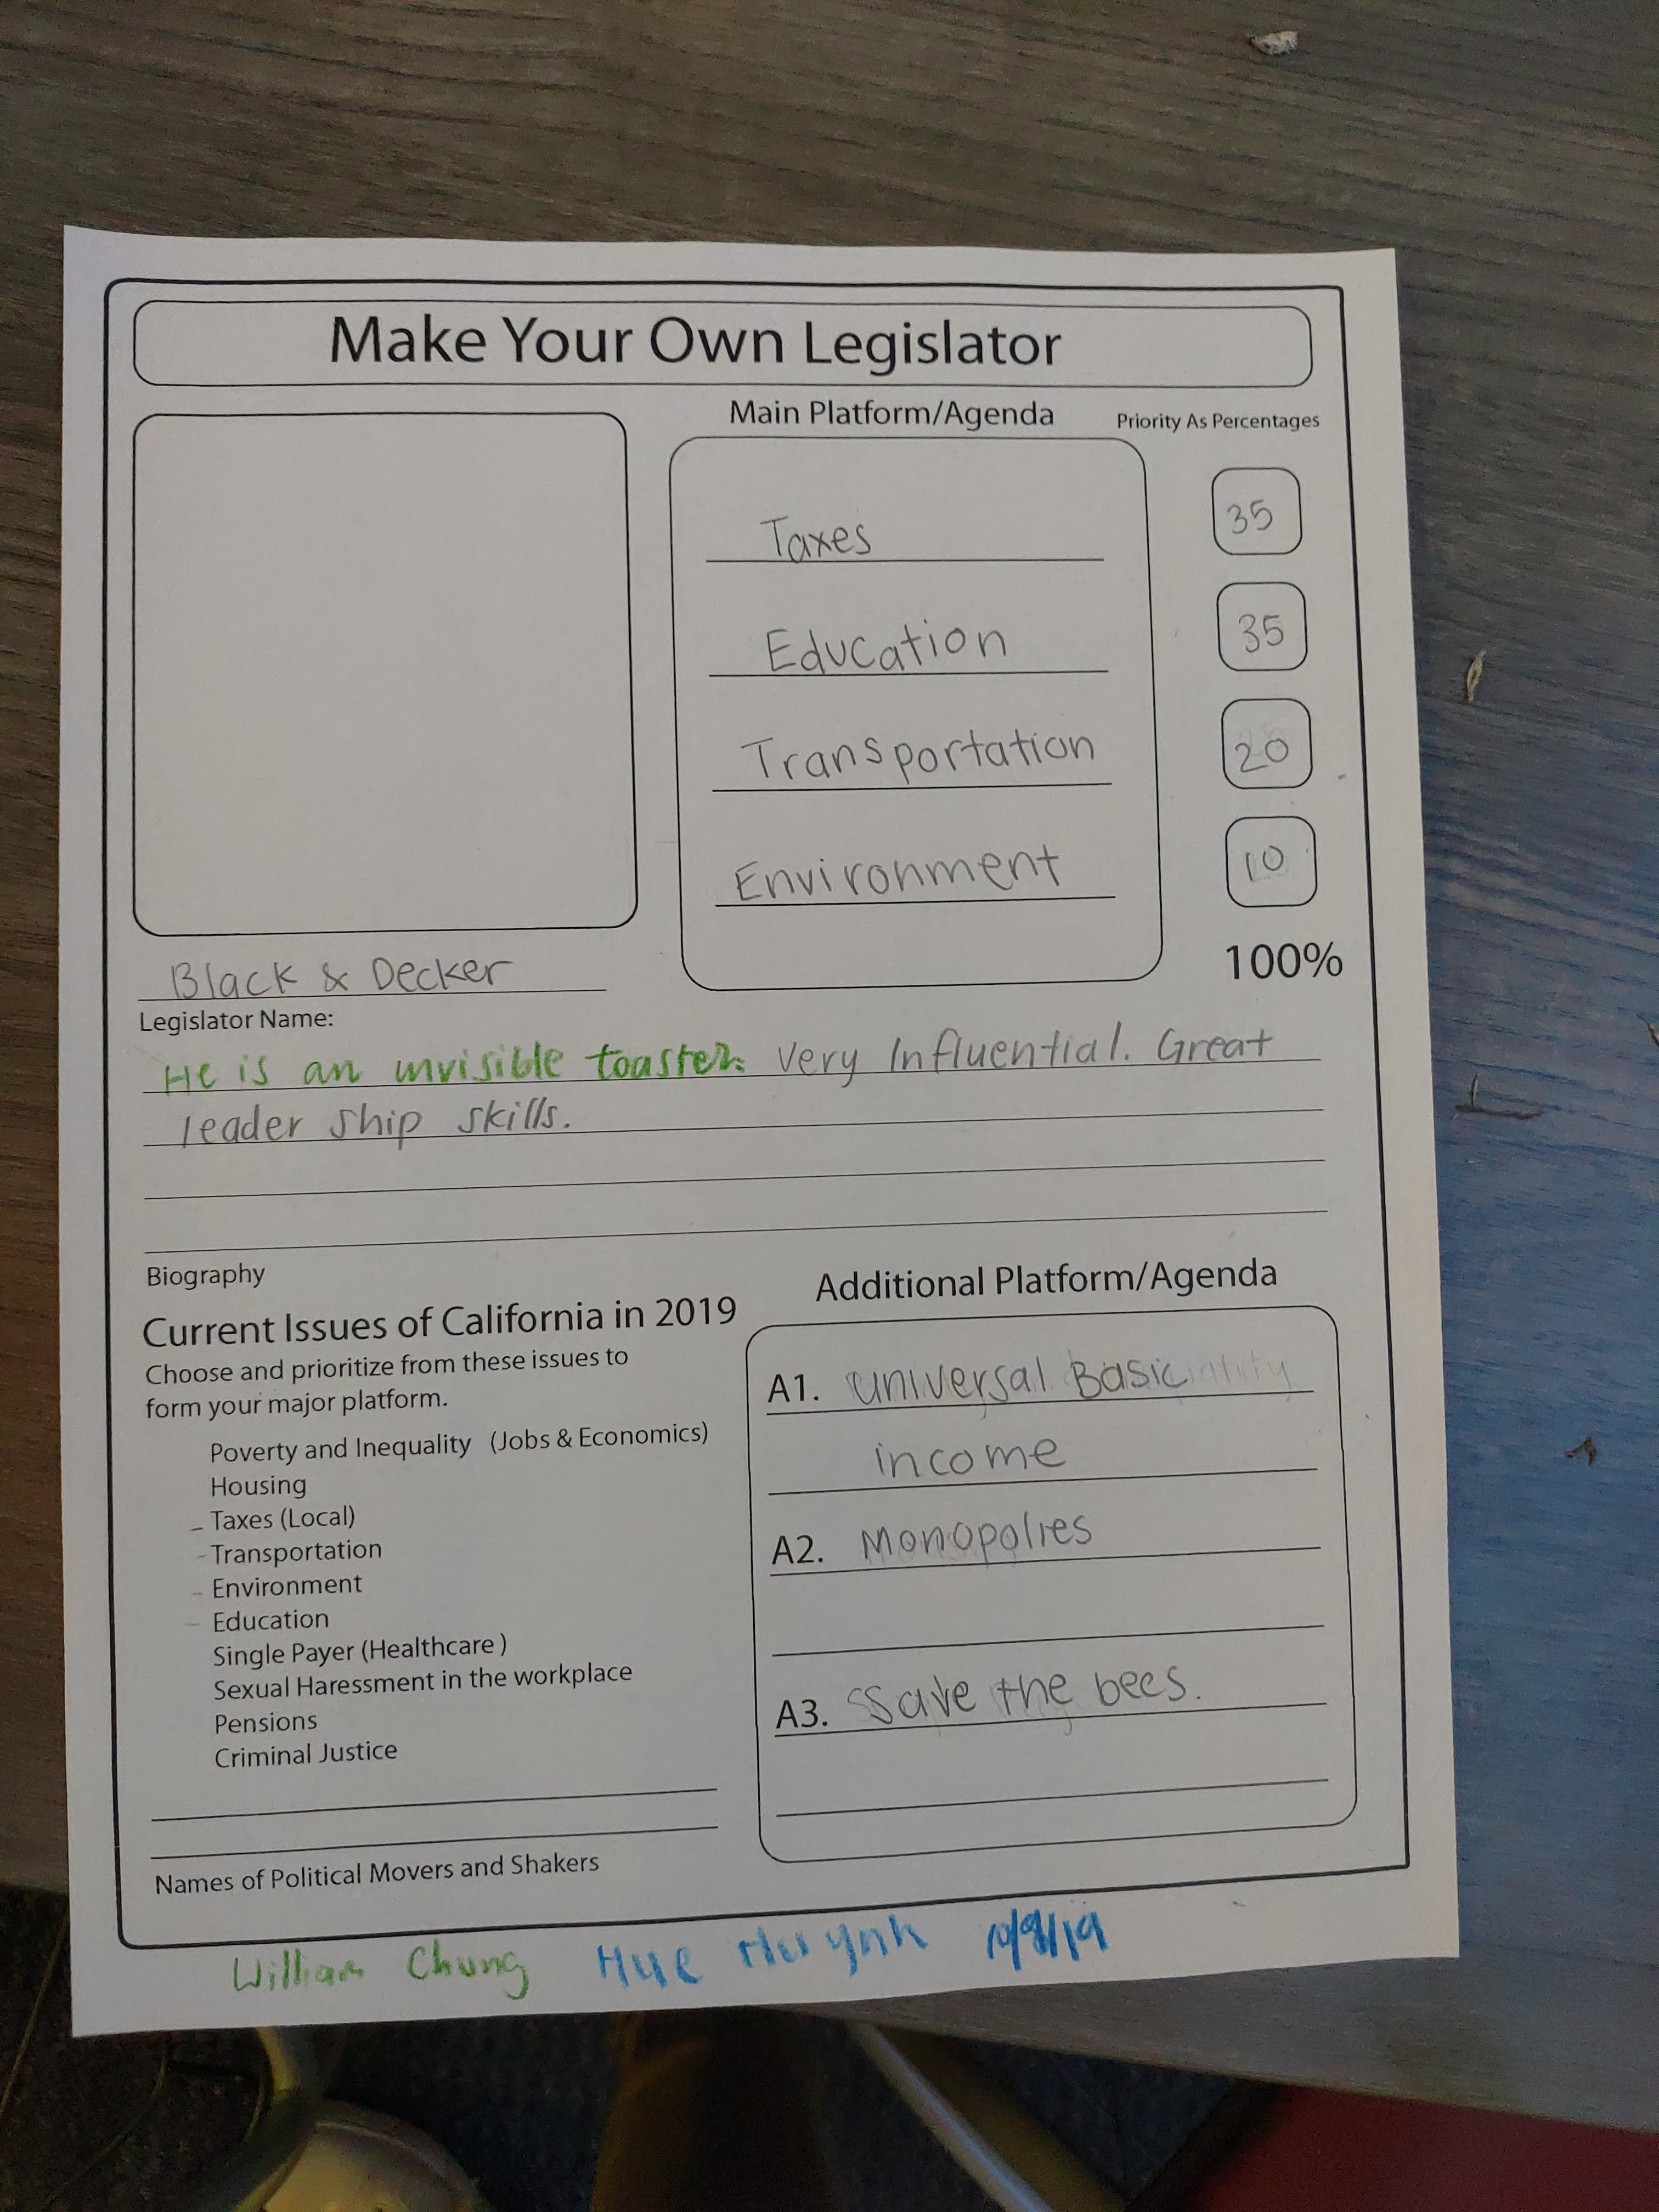 Make Your Own Legislator
Main Platform/Agenda
Priority As Percentages
Taxes
35
Education
35
Transportation
20
Environment
10
100%
Black & Decker
Legislator Name:
He is an invisible toaster. Very Influential. Great
leader ship skills.
Biography
Current Issues of California in 2019
Choose and prioritize from these issues to
form your major platform.
Poverty and Inequality (Jobs & Economics)
Housing
- Taxes (Local)
- Transportation
- Environment
- Education
Single Payer (Healthcare )
Sexual Haressment in the workplace
Pensions
Criminal Justice
Names of Political Movers and Shakers
Additional Platform/Agenda
A1. Universal Basic
income
A2. Monopolies
A3. Save the bees.
William Chung Hue Huynh 10/9/19